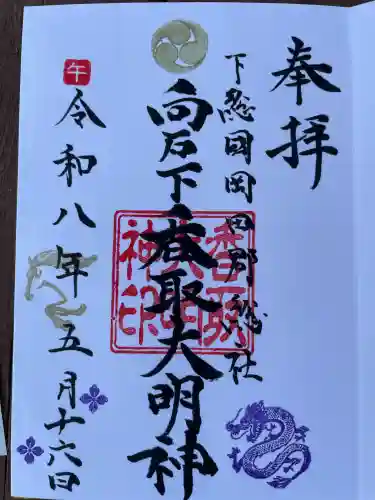 奉拝
下総国岡田郡総社
向石下香取大明神
香取
大明
神印
午
令和八年五月十六日